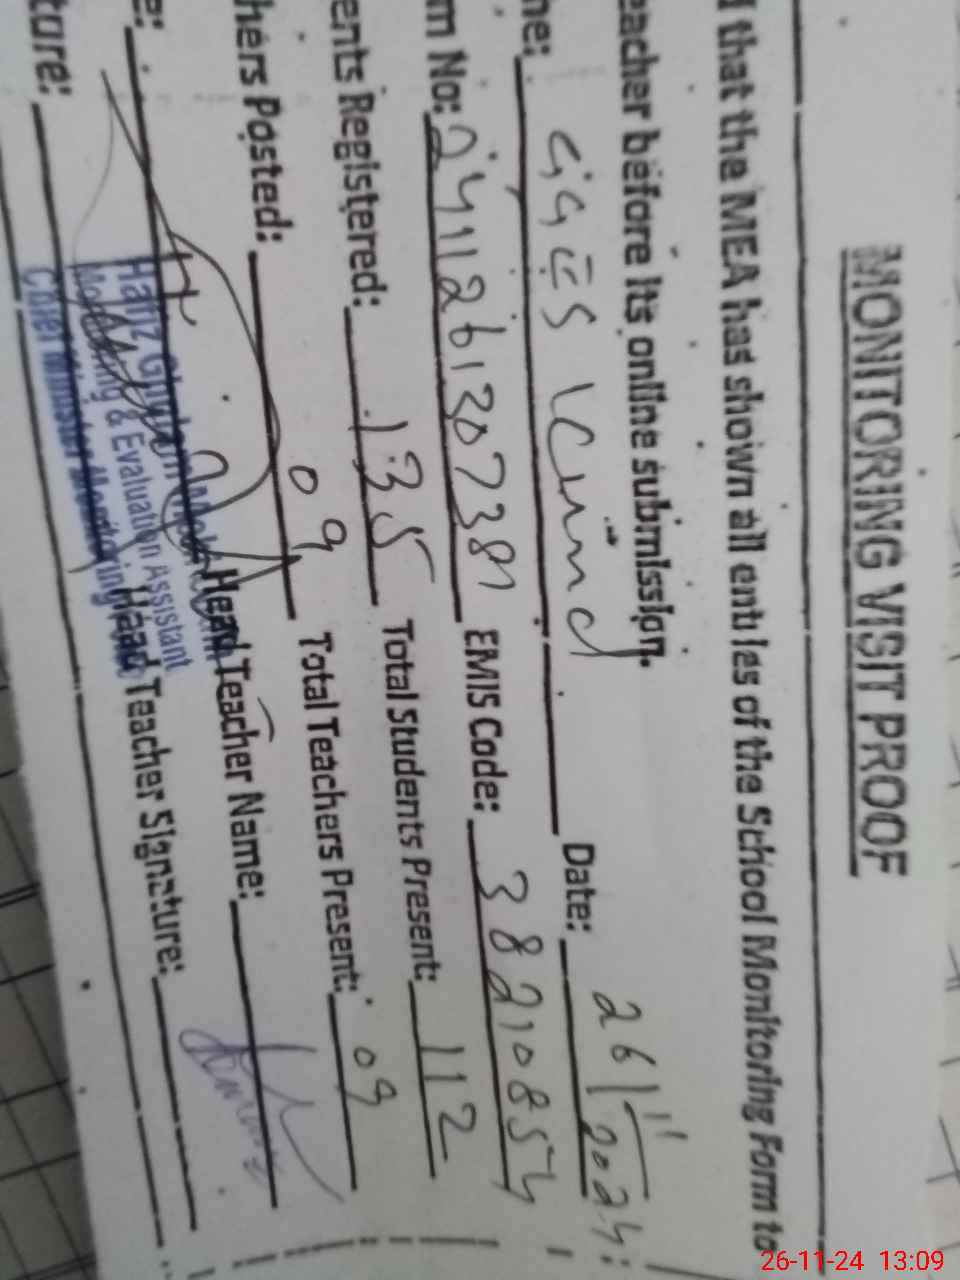 MONITORING VISIT PROOF
that the MEA has shown all entries of the School Monitoring Form to
eacher before its online submission.
ne: GGES Date: 26/11/2024
m No: EMIS Code: 38210854
ents Registered: 135 Total Students Present: 112
hers Posted: 09 Total Teachers Present: 09
e: Head Teacher Name:
ture: Head Teacher Signature:
Hafiz Ghulam
Monitoring & Evaluation Assistant
Chief Minister Monitoring
26-11-24 13:09